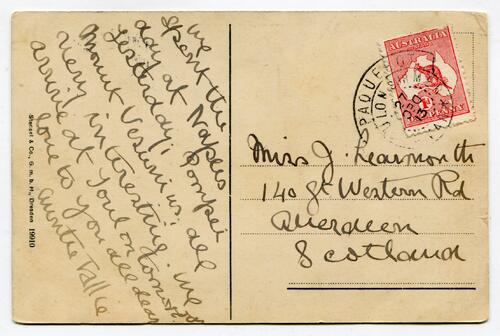 We
spent the
day at Naples
yesterday, Pompei
Mount Vesuvius; all
very interesting. We
arrive at Toulon tomorrow
love to you all dear
Auntie Tallie
Stengel & Co., G. m. b. H., Dresden 19910
AUSTRALIA
PENNY
PAQUEBOT
27 DEC
13
Miss J. Learmonth
140 Gt. Western Rd
Aberdeen
Scotland